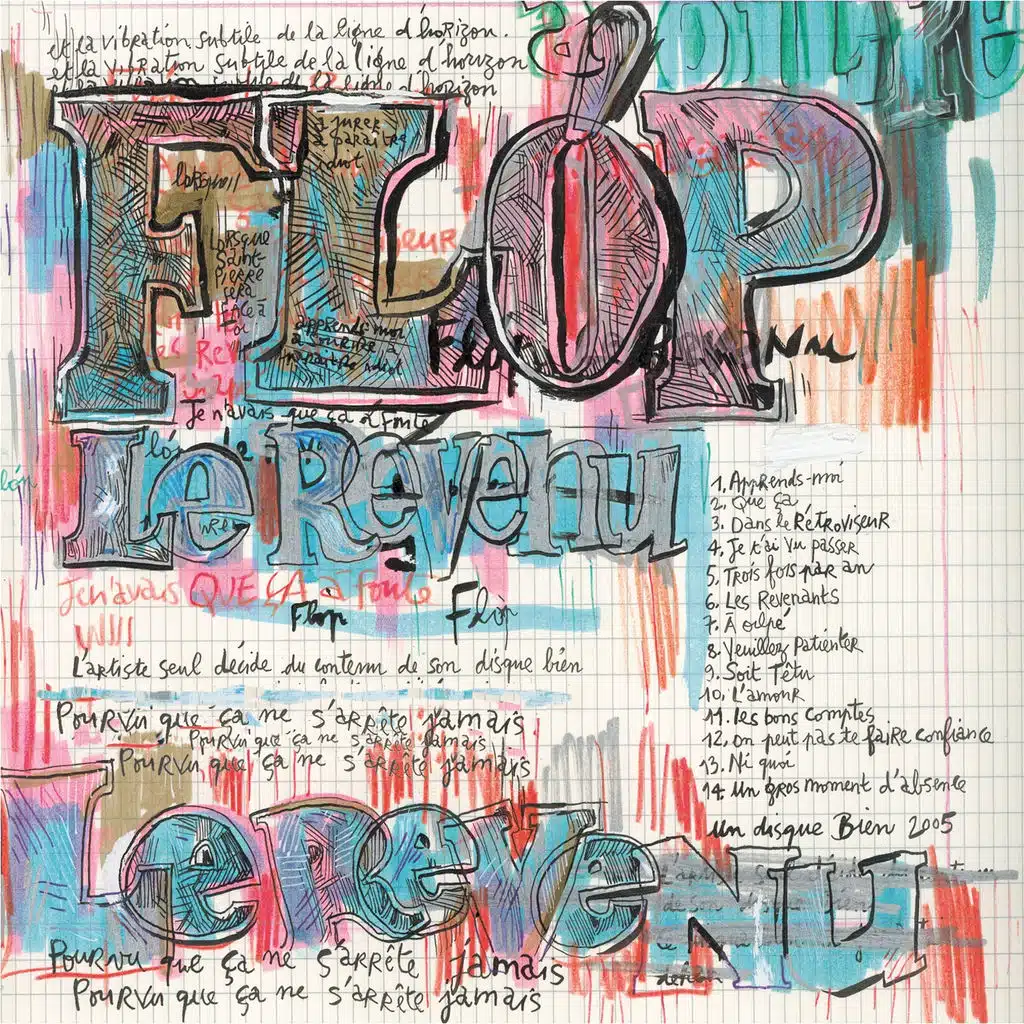 et la vibration subtile de la ligne d'horizon.
et la vibration subtile de la ligne d'horizon
et la vibration subtile de la ligne d'horizon
FLÓP
à paraître
idiot
Lorsque
Saint-
Pierre
sera
apprends-moi
à
paraître idiot
Je n'avais que ça à foutre
Le Revenu
Je n'avais QUE ÇA à Foutre
Flop Flóp
L'artiste seul décide du contenu de son disque bien
Pourvu que ça ne s'arrête jamais
Pourvu que ça ne s'arrête jamais
Pourvu que ça ne s'arrête jamais
1. Apprends-moi
2. Que ça
3. Dans le Rétroviseur
4. Je t'ai vu passer
5. Trois fois par an
6. Les Revenants
7. À oilpé
8. Veuillez patienter
9. Soit Têtu
10. L'amour
11. Les bons comptes
12. on peut pas te faire confiance
13. Ni quoi
14. un gros moment d'absence
un disque Bien 2005
Le Revenu
Pourvu que ça ne s'arrête jamais
Pourvu que ça ne s'arrête jamais